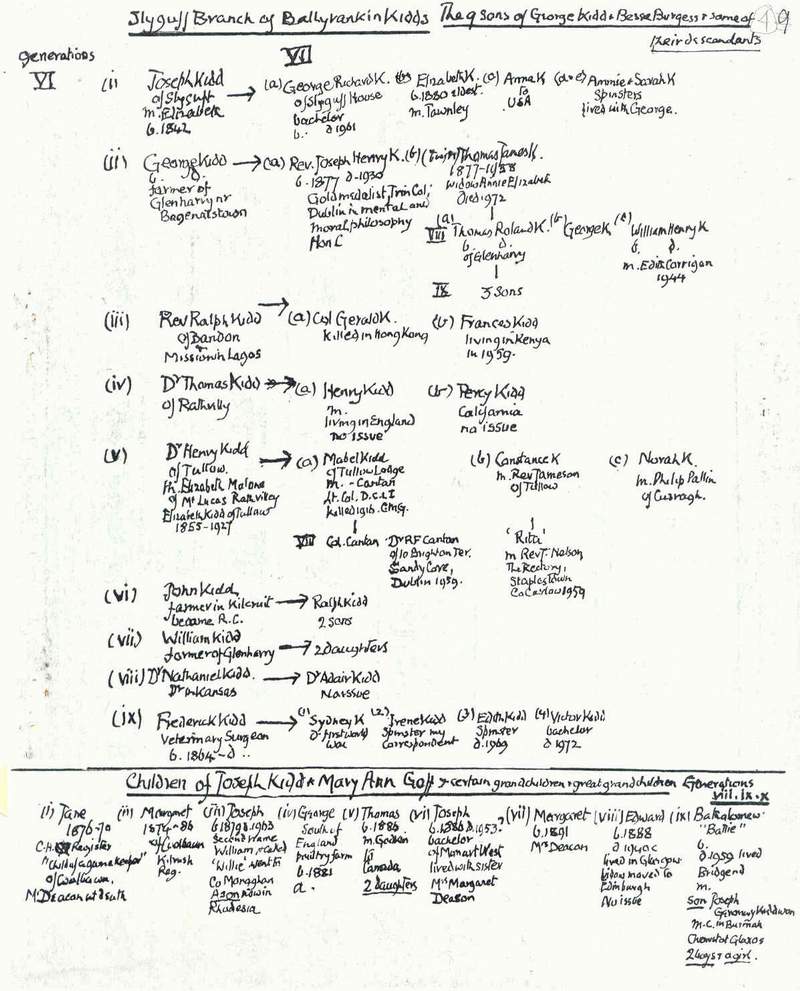 Slyguff Branch of Ballyrankin Kidds The 9 sons of George Kidd & Besse Burgess & some of their descendants
9
generations
VI
VII
(i) Joseph Kidd
of Slyguff
m. Elizabeth
b. 1842
(a) George Richard K.
of Slyguff House
bachelor
b. d 1961
(b) Elizabeth K.
b. 1880 eldest
m. Pawnley
(c) Anna K
to
USA
(d+e) Annie & Sarah K
Spinsters
lived with George.
(ii) George Kidd
b. d.
farmer of
Glenharry nr
Bagenalstown
(a) Rev. Joseph Henry K.
b. 1877 d. 1930
Gold medalist, Trin Col,
Dublin in mental and
moral philosophy
(b) (twin) Thomas James K.
1877-1958
widow Annie Elizabeth
died 1972
VIII
(a) Thomas Roland K.
b. d.
of Glenharry
(b) George K
(c) William Henry K
b. d.
m. Edith Corrigan
1944
IX 3 sons
(iii) Rev Ralph Kidd
of Bandon
Mission in Lagos
(a) Col Gerald K.
killed in Hong Kong
(b) Frances Kidd
living in Kenya
in 1959.
(iv) Dr Thomas Kidd
of Rathvilly
(a) Henry Kidd
m.
living in England
no issue
(b) Percy Kidd
California
no issue
(v) Dr Henry Kidd
of Tullow.
m. Elizabeth Malone
of Mt Lucas Rathvilley
Elizabeth Kidd of Tullow
1855-1927
(a) Mabel Kidd
of Tullow Lodge
m. - Cantan
Lt. Col. D.C.L.I
killed 1916. CMG.
(b) Constance K
m. Rev Jameson
of Tullow
(c) Norah K.
m. Philip Pallin
of Curragh.
VIII Col. Cantan
Dr RF Cantan
of 10 Brighton Ter.
Sandy Cove,
Dublin 1959.
'Rita'
m Rev T. Nelson
The Rectory,
Staplestown
Co Carlow 1959
(vi) John Kidd,
farmer in Kilcruit
became R.C.
Ralph Kidd
2 sons
(vii) William Kidd
farmer of Glenharry
2 daughters
(viii) Dr Nathaniel Kidd.
Dr in Kansas
Dr Adair Kidd
No issue
(ix) Frederick Kidd
Veterinary Surgeon
b. 1864-d ..
(1) Sydney K
d. first world
war
(2) Irene Kidd
Spinster my
correspondent
(3) Edith Kidd
Spinster
d. 1969
(4) Victor Kidd
bachelor
d 1972
Children of Joseph Kidd & Mary Ann Goff & certain grandchildren & great grandchildren Generations
viii. ix. x
(i) Jane
1876-70
C.H. Register
"Child of a gamekeeper"
Mrs Deacon
(ii) Margaret
1874-86
Kilrush
Reg.
(iii) Joseph
b. 1879 d. 1963
Second name
William & called
'Willie' went to
Co Monaghan
A son Edwin
Rhodesia
(iv) George
South of
England
poultry farm
b. 1881
d.
(v) Thomas
b. 1886
m. Godkin
to
Canada
2 daughters
(vi) Joseph
b. 1886 d 1953
bachelor
of Monart West
lived with sister
Mrs Margaret
Deacon
(vii) Margaret
b. 1891
Mrs Deacon
(viii) Edward
b. 1888
d 1940c
lived in Glasgow
widow moved to
Edinburgh
No issue
(ix) Batholomew
"Battie"
b.
d 1959 lived
Bridgend
m.
son Joseph
M.C. in Burmah
Chemist at Glaxos
2 boys & a girl.